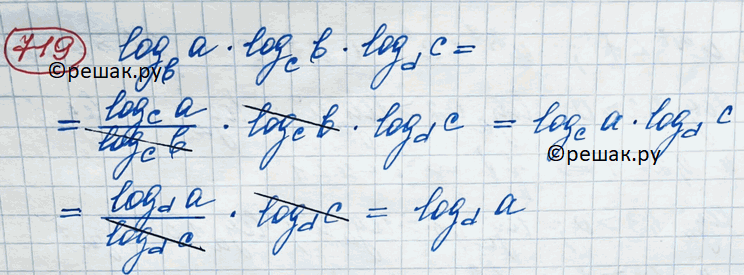 719 log_b a · log_c b · log_d c =
©решак.ру
= log_c a / log_c b · log_c b · log_d c = log_c a · log_d c
©решак.ру
= log_d a / log_d c · log_d c = log_d a